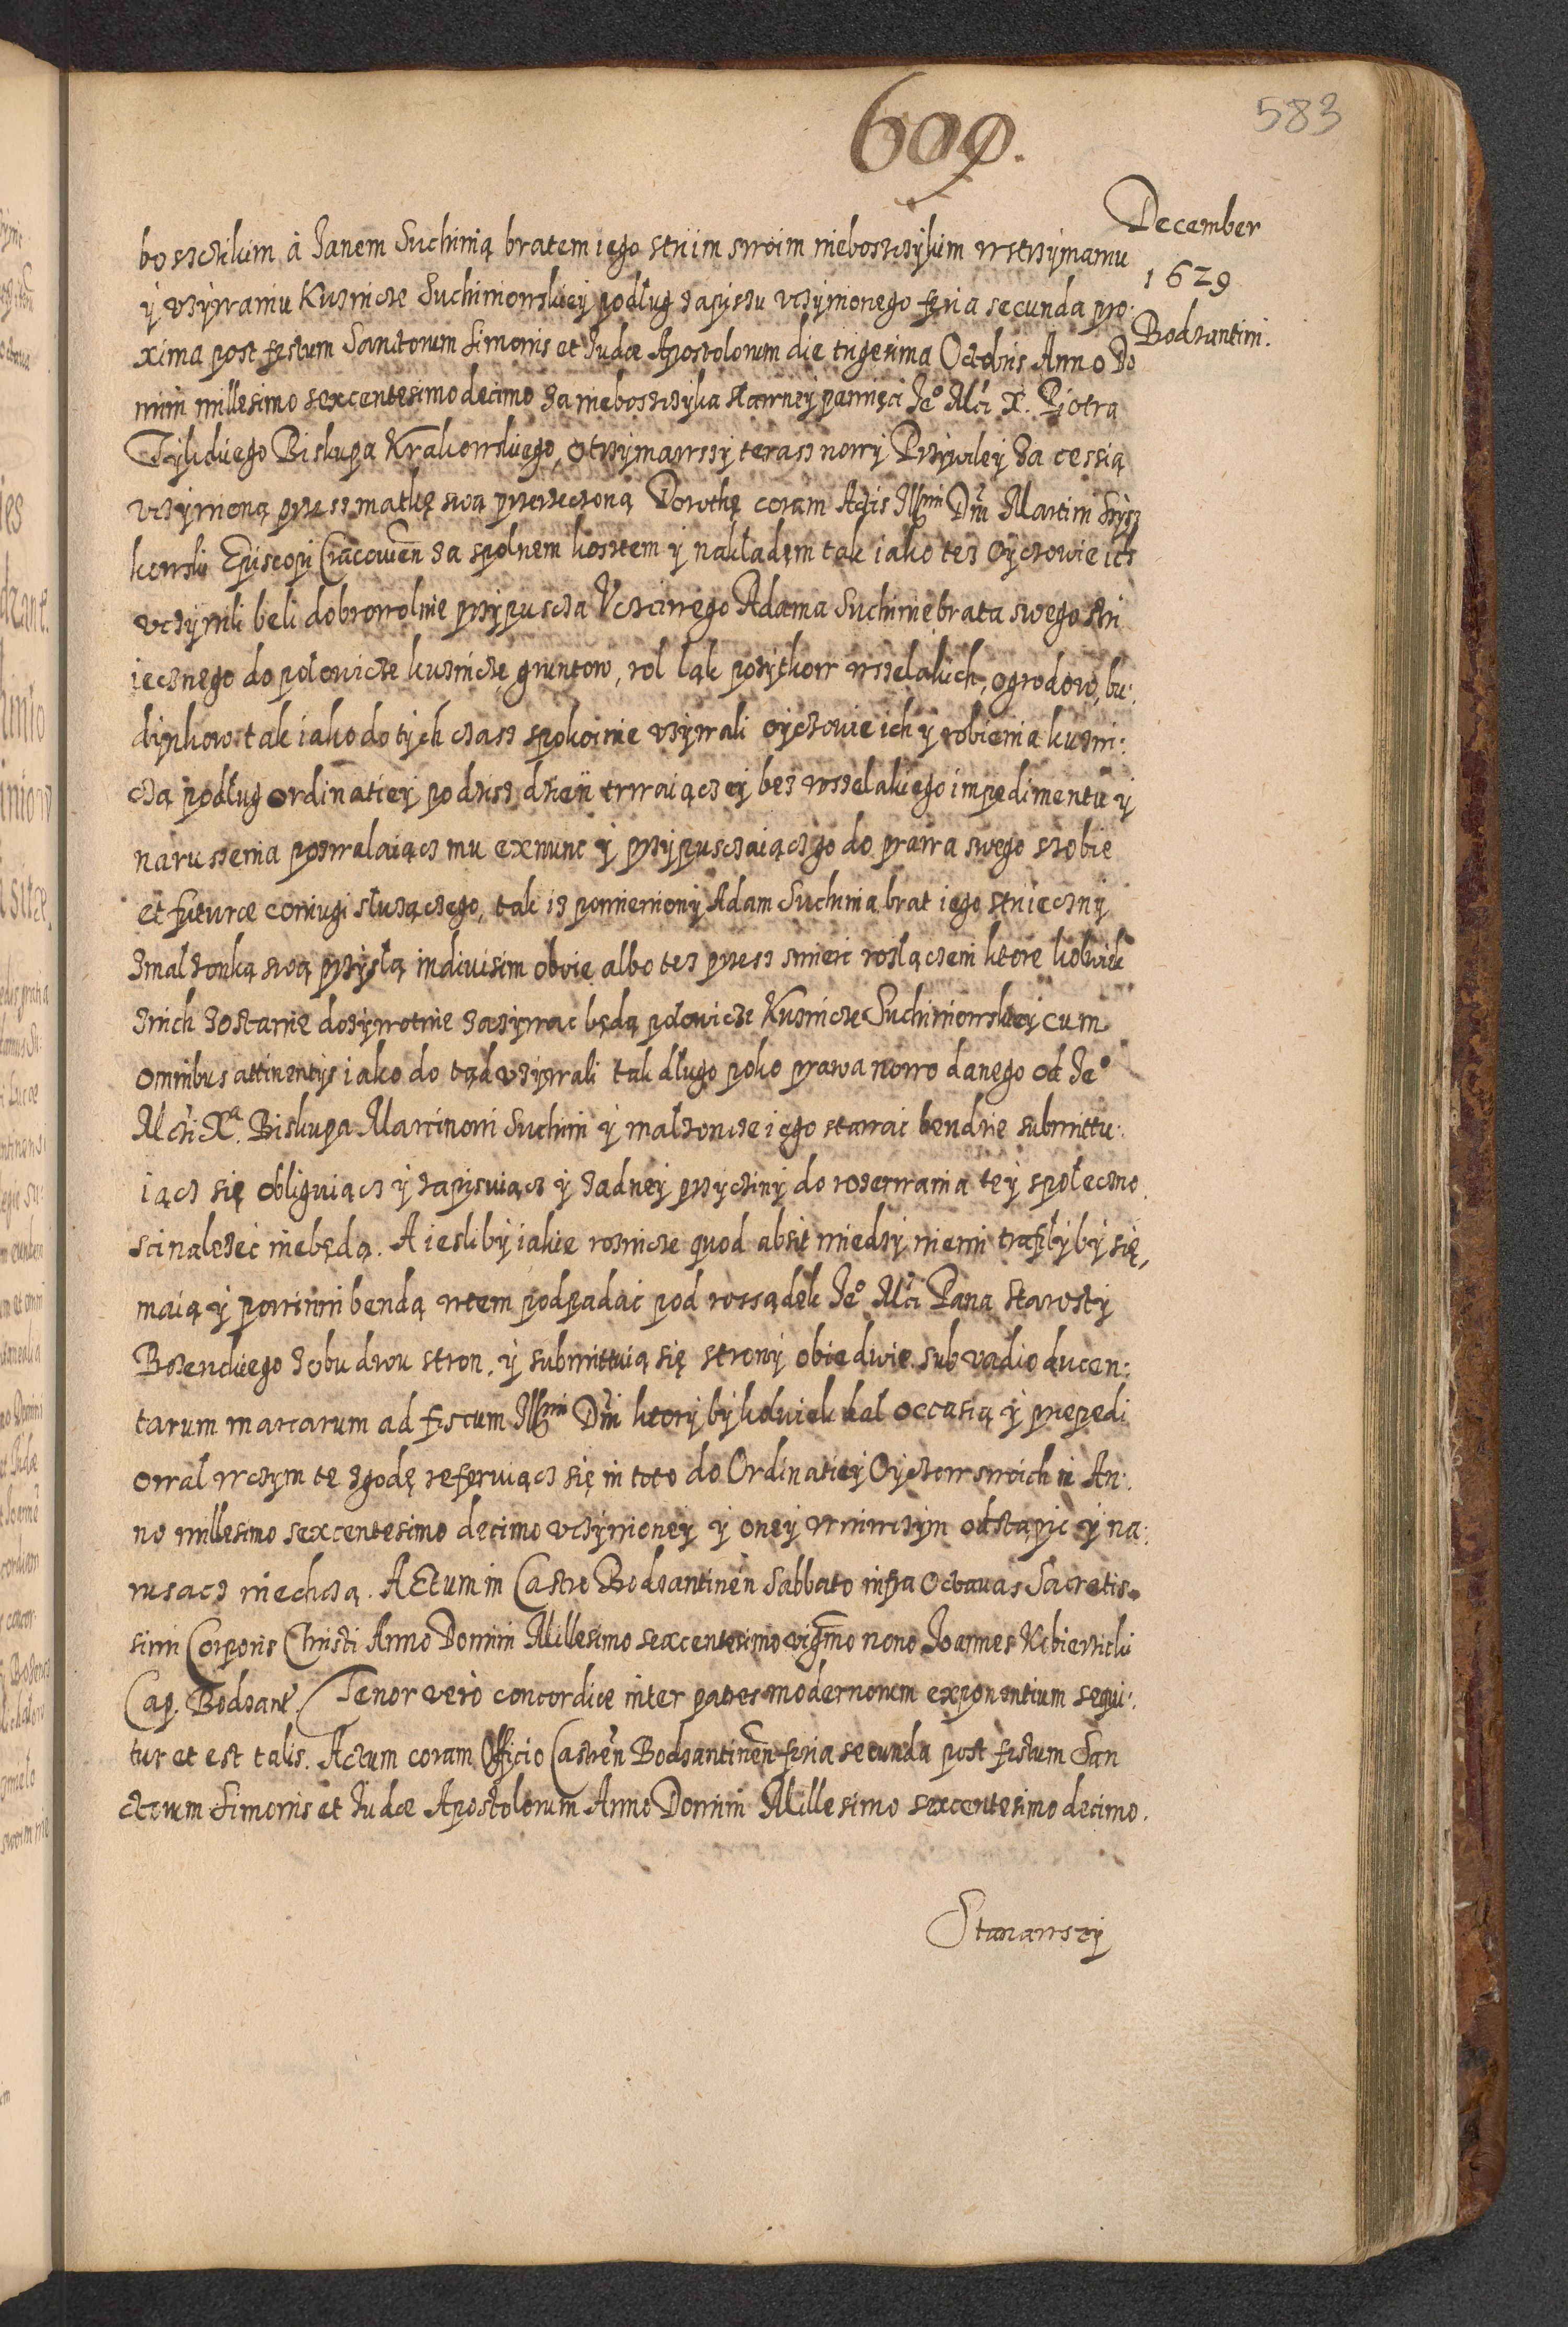 609.
583
December
1629
Bodzantini.
boszczikim à Janem Suchinią bratem iego striim swoim nieboszczykim wstrzymaniu
ÿ vzÿwaniu Kuznicze Suchiniowskieÿ podług zapiszu vczÿnionego feria secunda pro:
xima post festum Sanctorum Simonis et Judæ Apostolorum die trigesima Octobris Anno Do
mini millesimo sexcentesimo decimo za nieboszczÿka sławneÿ pamięci Je° Mći X. Piotra
Tÿlickiego Biskupa Krakowskiego, otrzÿmawszÿ terasz nowÿ Przÿwileÿ za cessią
vczÿnioną przesz matkę swą przerzeczoną Dorothę coram Actis Illmi Dni Martini Szÿsz
kowski Episcopi Cracouien̄ za spolnem kosztem ÿ nakładęm tak iako tez Oÿczowie ich
vczÿnili beli dobrowolnie przÿpuscza Vczciwego Adama Suchinie brata swego stri
iecznego do połowicze kuznicze, gruntow, rol łąk pozÿtkow wszelakich, ogrodow, bu:
dÿnkow tak iako do tÿch czasz spokoinie vzÿwali oÿczowie ich ÿ robienia kuzni:
czą podług ordinatieÿ podzisz dzień trwaiączeÿ bez wszelakiego impedimentu ÿ
naruszenia pozwalaiącz mu exnunc ÿ przÿpusczaiącz go do prawa swego szobie
et futuræ coniugi słuzączego, tak isz pomienionÿ Adam Suchinia brat iego striecznÿ
zmałzonką swą przÿszłą indiuisim oboie albo tez przesz smierc rozłączeni ktore kolwiek
znich zostanie dozÿwotnie zazÿwac będą połowicze Kuznicze Suchiniowskieÿ cum
omnibus attinentÿs iako do tąd vzÿwali tak długo poko prawa nowo danego od Je°
Mczi Xa. Biskupa Marcinowi Suchini ÿ małzoncze iego stawac bendzie submittu:
iącz się obliguiącz ÿ zapisuiącz ÿ zadneÿ przÿczinÿ do rozerwania teÿ społeczno
sci nalezeć niebędą. A iesli bÿ iakie roznicze quod absit miedzÿ niemi trafiłÿ bÿ się,
maią ÿ powinni bendą wtem podpadac pod rossądek Je° Mći Pana Starostÿ
Bozenckiego zobu dwu stron. ÿ submittuią się stronÿ obiedwie sub vadio ducen:
tarum marcarum ad fiscum Illmi Dni ktorÿ bÿ kolwiek dał occasią ÿ præpedi
owal wczym te zgodę referuiącz się in toto do Ordinatieÿ Oÿczow swoich in An:
no millesimo sexcentesimo decimo vczÿnioneÿ ÿ oneÿ wniwczÿm odstąpic ÿ na:
rusacz niechczą. Actum in Castro Bodzantinen̄ Sabbato infra Octauas Sacratis:
simi Corporis Christi Anno Domini Millesimo sexcentesimo vigmo nono Joannes Kcbierzicki
Cap. Bodzant. Tenor verò concordiæ inter patres modernorum exponentium sequi:
tur et est talis. Actum coram Officio Castren̄ Bodzantinen̄ feria secunda post festum San
ctorum Simonis et Judæ Apostolorum Anno Domini Millesimo sexcentesimo decimo.
Stanawszÿ